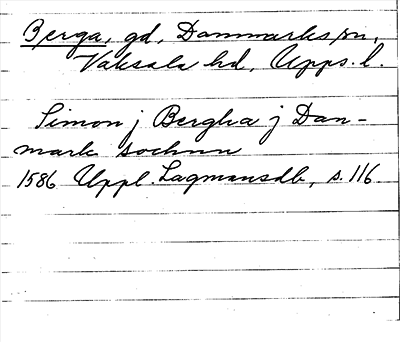 Berga, gd, Danmarks sn,
Vaksala hd, Upps. l.
Simon j Bergha j Dan-
mark sochnn
1586 Uppl. Lagmansdb, s. 116.